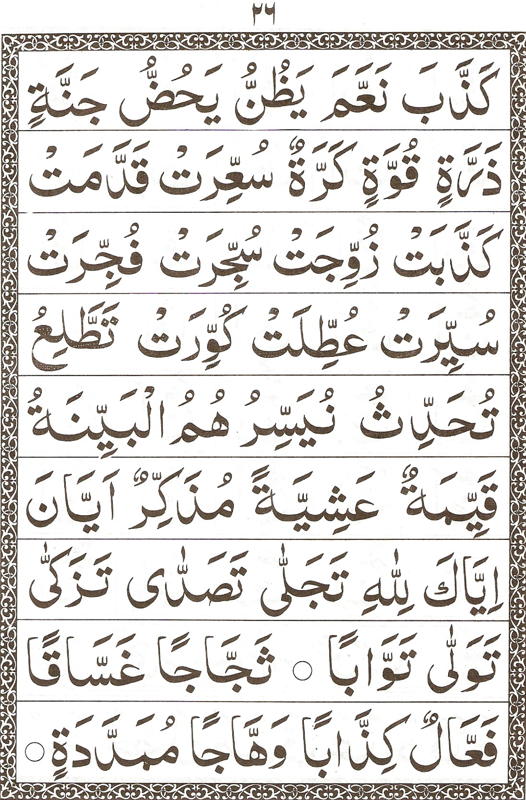 ٢٦
كَذَّبَ نَعَّمَ يَظُنُّ يَحُضُّ جَنَّةٍ
ذَرَّةٍ قُوَّةٍ كَرَّةٌ سُعِّرَتْ قَدَّمَتْ
كَذَّبَتْ زُوِّجَتْ سُجِّرَتْ فُجِّرَتْ
سُيِّرَتْ عُطِّلَتْ كُوِّرَتْ تَطَّلِعُ
تُحَدِّثُ نُيَسِّرُ هُمُ الْبَيِّنَةُ
قَيِّمَةٌ عَشِيَّةً مُذَكِّرٌ اَيَّانَ
اِيَّاكَ لِلّٰهِ تَجَلّٰى تَصَدّٰى تَزَكّٰى
تَوَلّٰى تَوَّابًا ○ ثَجَّاجًا غَسَّاقًا
فَعَّالٌ كِذَّابًا وَهَّاجًا مُمَدَّدَةٍ ○